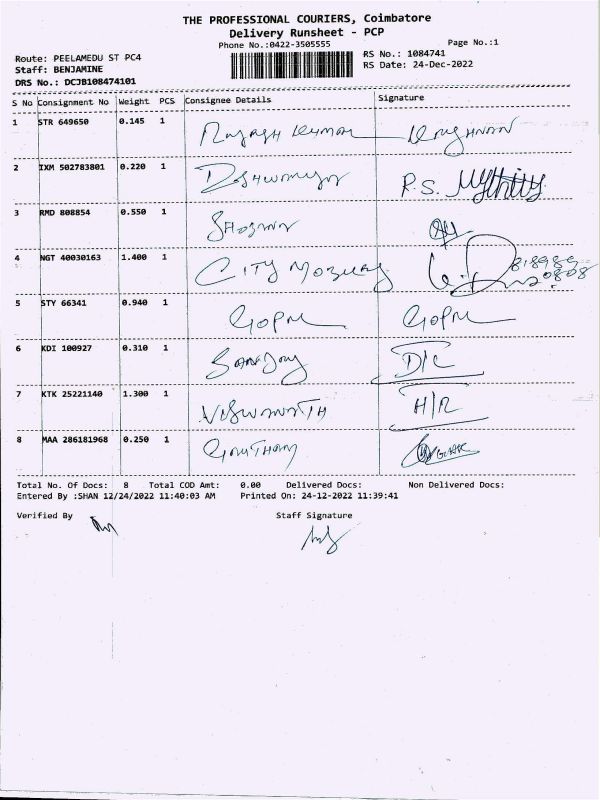 THE PROFESSIONAL COURIERS, Coimbatore
Delivery Runsheet - PCP
Phone No.:0422-3505555
Page No.:1
Route: PEELAMEDU ST PC4
RS No.: 1084741
Staff: BENJAMINE
RS Date: 24-Dec-2022
DRS No.: DCJB108474101
S No Consignment No Weight PCS Consignee Details Signature
1 STR 649650 0.145 1
2 IXM 502783801 0.220 1 R.S.
3 RMD 808854 0.550 1
4 NGT 40030163 1.400 1 CITY
5 STY 66341 0.940 1 GOPAL GOPAL
6 KDI 100927 0.310 1
7 KTK 25221140 1.300 1 H/R
8 MAA 286181968 0.250 1 GOUTHAM
Total No. Of Docs: 8 Total COD Amt: 0.00 Delivered Docs: Non Delivered Docs:
Entered By :SHAN 12/24/2022 11:40:03 AM Printed On: 24-12-2022 11:39:41
Verified By Staff Signature